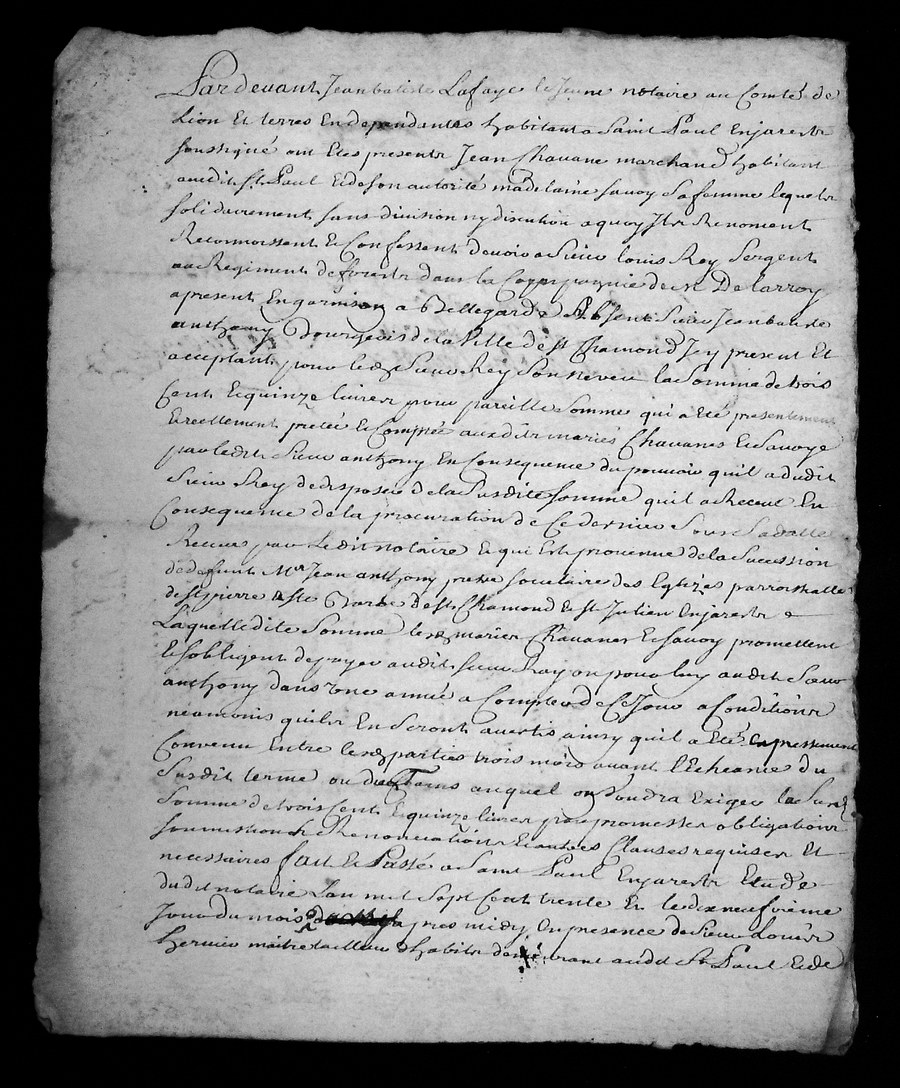 Pardevant Jean batiste Lafaye le Jeune notaire au Comté de
Lion Et terres En dependantes habitant a Saint Paul Enjarestz
soussigné ont Etes presentz Jean Chavane marchand habitant
audit St Paul Et de son autorité madelaine savoy sa femme lequelz
solidairement sans division ny discution a quoy Ilz Renoncent
Reconnoissent Et Confessent devoir a Sieur louis Rey Sergent
au Regiment de forestz dans la Compagnie de Mr De larroy
apresent En garnison a Bellegarde Absent Sieur Jean batiste
anthony Bourgeois de la Ville de St Chamond Icy present Et
acceptant pour led Sieur Rey Son neveu la Somme de trois
Cent Et quinze livres pour pareille Somme qui a Eté presentement
Et reellement pretée Et Comptée auxdits mariés Chavanes Et Savoye
par ledit Sieur anthony En Consequence du pouvoir quil a dudit
Sieur Rey de disposer de la Susdite somme quil a Receue En
Consequence de la procuration de Ce dernier Sous Sa datte
Receue par Ledit notaire Et qui Est provenue de la Sucession
de defunt Mre Jean anthony pretre societaire des Eglizes parroissialles
de St pierre Et Ste Barbe de St Chamond Et St Julien Enjarestz
Laquelle dite Somme lesd mariés Chavanes Et Savoy promettent
Et sobligent de payer audit Sieur Rey ou pour luy audit Sieur
anthony dans une année a Compter de Ce Jour a Conditions
neamoins quils En Seront avertis ainsy quil a Eté expressement
Convenu Entre lesd parties trois mois avant l'Echeance du
Susdit terme ou du tems auquel on voudra Exiger la Susd
Somme de trois Cent Et quinze livres par promesses obligations
soumissions Renonciations Et autres Clauses requises Et
necessaires fait Et Passé a Saint Paul Enjarestz Etude
dudit notaire L'an mil Sept Cent trente Et le dix neufvieme
Jour du mois apres midy En presence de Sieur Louis
hervier maitre tailleur d'habits demeurant audit St Paul Et de